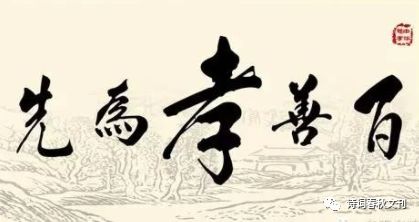 百善孝為先
诗词春秋文刊